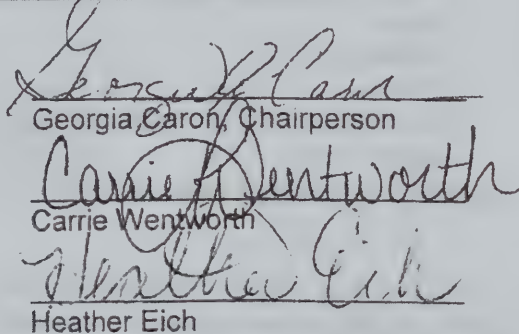 Georgia Caron
Georgia Caron, Chairperson
Carrie Wentworth
Carrie Wentworth
Heather Eich
Heather Eich